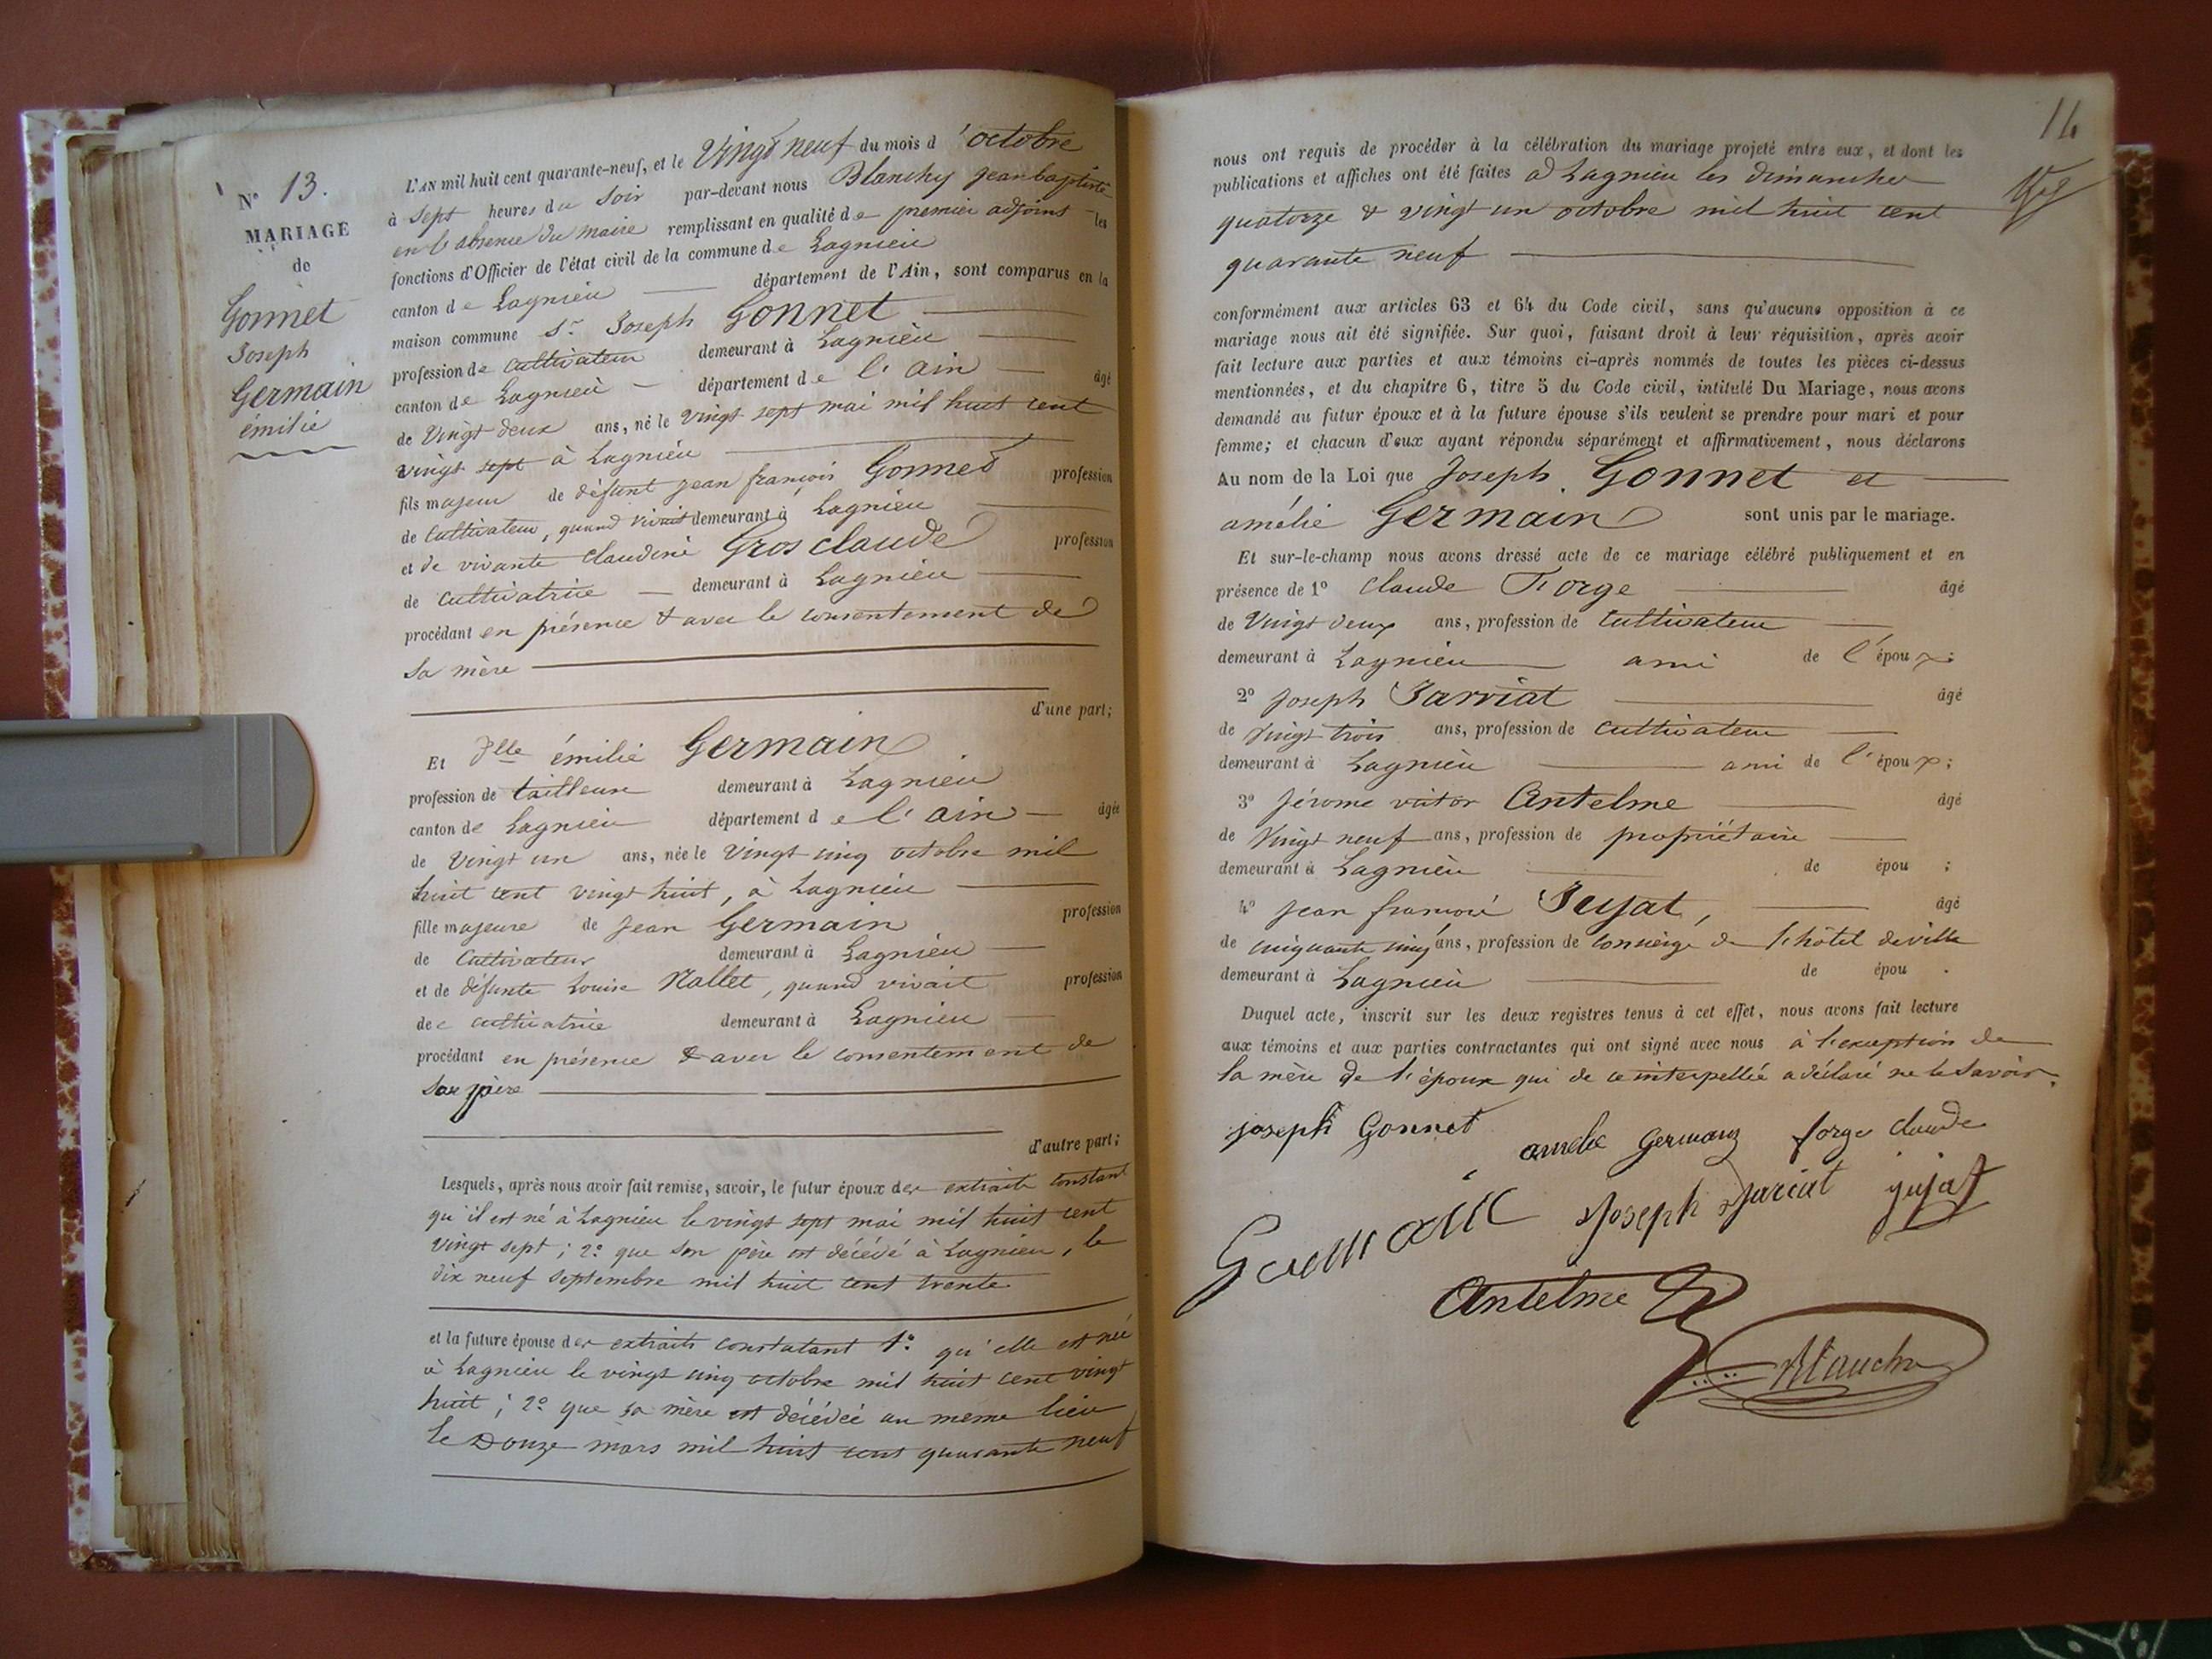 N° 13.
MARIAGE
de
Gonnet
Joseph
Germain
émilie
L'AN mil huit cent quarante-neuf, et le Vingt neuf du mois d'octobre
à sept heures du soir par-devant nous Blanchy jean baptiste
en l'absence du maire remplissant en qualité de premier adjoint les
fonctions d'Officier de l'état civil de la commune de Lagnieu
canton de Lagnieu département de l'Ain, sont comparus en la
maison commune Sr Joseph Gonnet
profession de cultivateur demeurant à Lagnieu
canton de Lagnieu département de l'ain âgé
de Vingt deux ans, né le vingt sept mai mil huit cent
vingt sept à Lagnieu
fils majeur de défunt jean françois Gonnet profession
de Cultivateur, quand vivait demeurant à Lagnieu
et de vivante Claudine Gros claude profession
de cultivatrice demeurant à Lagnieu
procédant en présence & avec le consentement de
sa mère
d'une part;
Et Dlle émilie Germain
profession de tailleuse demeurant à Lagnieu
canton de Lagnieu département de l'ain âgée
de Vingt un ans, née le Vingt cinq octobre mil
huit cent vingt huit, à Lagnieu
fille majeure de Jean Germain profession
de Cultivateur demeurant à Lagnieu
et de défunte Louise Nallet, quand vivait profession
de cultivatrice demeurant à Lagnieu
procédant en présence & avec le consentement de
son père
d'autre part;
Lesquels, après nous avoir fait remise, savoir, le futur époux des extraits constant
qu'il est né à Lagnieu le vingt sept mai mil huit cent
vingt sept; 2° que son père est décédé à Lagnieu, le
dix neuf septembre mil huit cent trente
et la future épouse des extraits constatant 1° qu'elle est née
à Lagnieu le vingt cinq octobre mil huit cent vingt
huit; 2° que sa mère est décédée au meme lieu
le Douze mars mil huit cent quarante neuf
14
nous ont requis de procéder à la célébration du mariage projeté entre eux, et dont les
publications et affiches ont été faites à Lagnieu les dimanches
quatorze & vingt un octobre mil huit cent
quarante neuf
conformément aux articles 63 et 64 du Code civil, sans qu'aucune opposition à ce
mariage nous ait été signifiée. Sur quoi, faisant droit à leur réquisition, après avoir
fait lecture aux parties et aux témoins ci-après nommés de toutes les pièces ci-dessus
mentionnées, et du chapitre 6, titre 5 du Code civil, intitulé Du Mariage, nous avons
demandé au futur époux et à la future épouse s'ils veulent se prendre pour mari et pour
femme; et chacun d'eux ayant répondu séparément et affirmativement, nous déclarons
Au nom de la Loi que Joseph Gonnet et
amélie Germain sont unis par le mariage.
Et sur-le-champ nous avons dressé acte de ce mariage célébré publiquement et en
présence de 1° Claude Forge âgé
de Vingt deux ans, profession de Cultivateur
demeurant à Lagnieu ami de l'époux;
2° Joseph Jarriat âgé
de vingt trois ans, profession de Cultivateur
demeurant à Lagnieu ami de l'époux;
3° Jérome victor Antelme âgé
de Vingt neuf ans, profession de propriétaire
demeurant à Lagnieu de épou ;
4° Jean françois Jujat, âgé
de cinquante cinq ans, profession de concierge de l'hôtel de ville
demeurant à Lagnieu de épou .
Duquel acte, inscrit sur les deux registres tenus à cet effet, nous avons fait lecture
aux témoins et aux parties contractantes qui ont signé avec nous à l'exception de
la mère de l'époux qui de ce interpellée a déclaré ne le savoir.
joseph Gonnet amelie Germain forge claude
Germain Joseph Jarriat jujat
Antelme
Blanchy